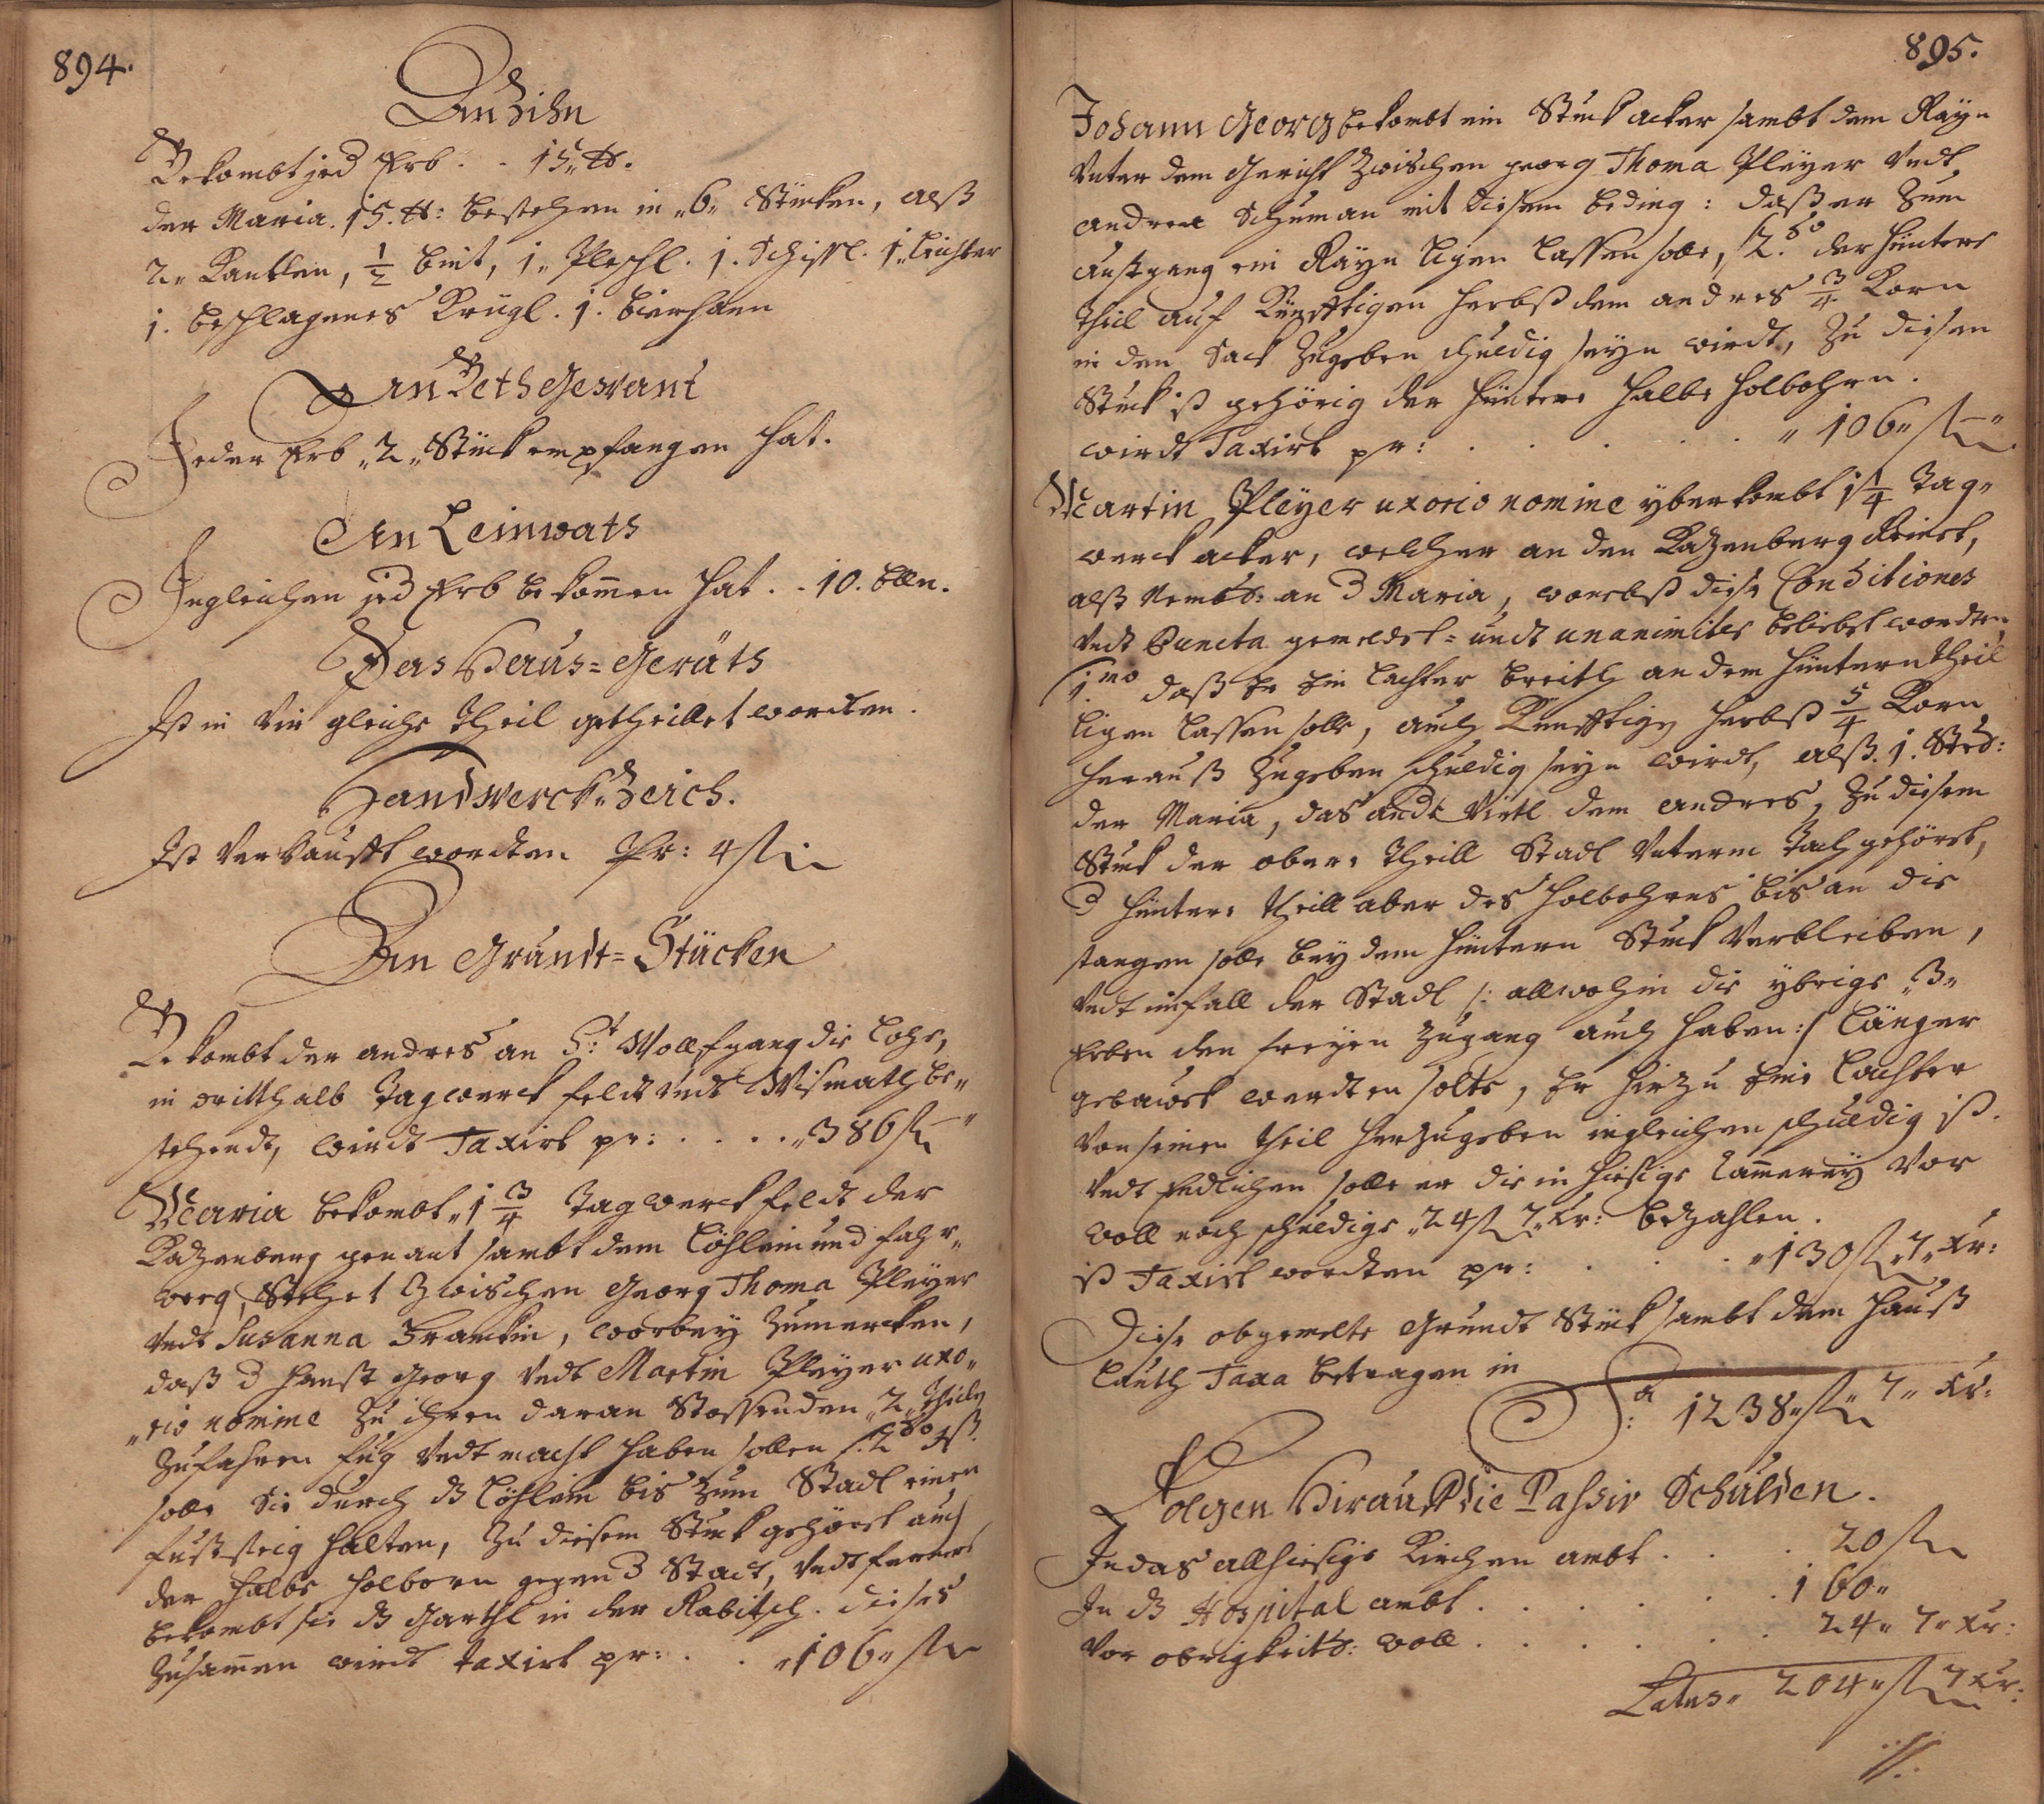 894.
An Zihn
Bekombt jed Erb . . 15 ℔.
der Maria. 15. ℔: bestehen in „6„ Stücken, alß
2„ Kandlen, 1/2 bint, 1„ Pleschl. 1. Schissl. 1„ leichter
1. beschlagenes Krügl. 1. bierhaen
An Beth Gewant
Jeder Erb „2„ Stück empfangen hat.
An Leinwath
Ingleichen jed Erb bekom̄en hat . . 10. Elln.
Das Haus=Geräth
Ist in vier gleiche theil getheillet worden.
Handwerck„Zeich.
Ist verkaufft worden Pr: 4 f
An Grundt=Stücken
Bekombt der andres an St: Wollfgang die Lohe,
in dritthalb Tagwerck feldt undt Wismath be„
stehendt, wirdt Taxirt pr: . . . . „386 f
Maria bekombt „1 3/4 Tagwerck feldt der
Kazenberg genant sambt dem Löhlein und fahr„
weeg, Stehet Zwischen Georg Thoma Pleyer
undt Susanna Franckin, worbey Zumercken,
daß d Hanß Georg undt Martin Pleyer uxo„
„rio nomine Zu ihren daran Stossenden „2„ theiln
Zufahren fug undt macht haben sollen
solle Sie durch dz Löhlein bis Zum Stadl einen
fußsteig halten, Zu diesem Stuck gehöret auch
der halbe holborn gegen d Stadt, undt ferners
bekombt sie dz Garthl in der Rabitsch. dieses
Zusam̄en wirdt taxirt pr: . . „106„ f
895.
Johann Georg bekombt ein Stuck acker sambt dem Rayn
Unter dem Gericht Zwischen georg Thoma Pleyer undt
andrea Schuman mit diesem beding: daß er Zum
außgang ein Rayn ligen lassen solle, 2.do der hintere
theil auf Künfftigen herbst dem andres 3/4 Korn
in den Sack Zugeben schuldig seyn wirdt, Zu diesen
Stuck ist gehörig der hintere halbe holbohrn.
wirdt Taxirt pr: . . . . . . „106„ f
Martin Pleyer uxorio nomine yberkombt 1 1/4 Tag„
werck acker, welcher an den Kazenberg Reinet,
alß nembl: an d Maria, worbey diese Conditiones
undt Puncta gemeldet= undt unanimiter beliebet worden
1.mo daß Er Ein lachter breith an dem hintern theil
ligen lassen solle, auch Künfftigen herbst 5/4 Korn
herauß Zugeben schuldig seyn wirdt, alß. 1. Str:
der Maria, das andre virtl dem andres, Zu diesem
Stuck der obere theill Stadl unterm Dach gehöret,
d hintere theill aber des holbohrns bis an die
stangen solle bey dem hintern Stuck verbleiben,
undt imfall der Stadl /: allwohin die ybrige „3„
Erben den freyen Zugang auch haben :/ länger
gebauet werden solte, Er hierzu Eine lachter
von seinen theil herzugeben ingleichen schuldig ist.
undt Endlichen solle er die in hiesige Cam̄erey vor
woll noch schuldige „24 f 7„ Kr: bezahlen.
ist Taxirt worden pr: . . . . „130 f 7„ Xr:
Diese obgemelte Grundt Stück sambt dem Hauß
lauth Taxa betragen in
Sa: 1238„ f 7„ Xr:
Folgen Hierauf die Passiv Schulden.
In das allhiesige Kirchen ambt . . . . 20 f
In dz Hospital ambt . . . . . . 160„
vor obrigkeitl: woll . . . . . . 24„ 7„ Xr:
Latus„ 204„ f 7 Xr: